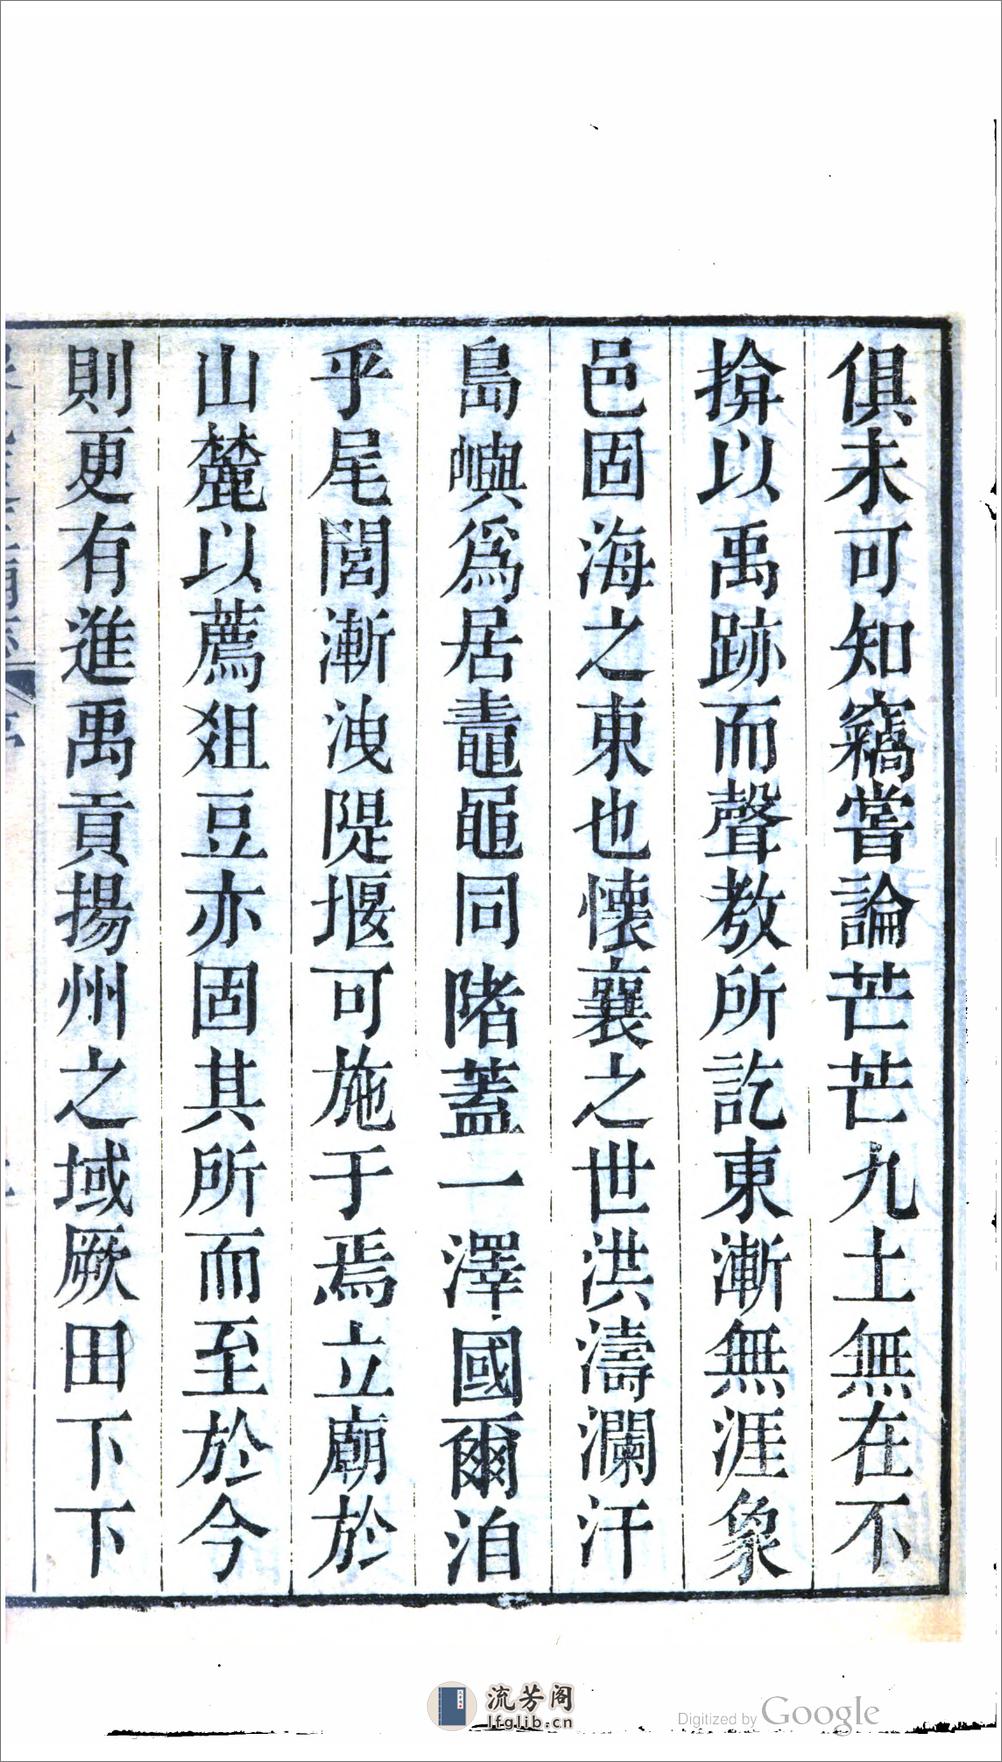 俱未可知竊嘗論芒芒九土無在不
揜以禹跡而聲教所訖東漸無涯象
邑固海之東也懷襄之世洪濤瀾汗
島嶼為居鼃黽同陼蓋一澤國爾洎
乎尾閭漸洩隄堰可施于焉立廟於
山麓以薦俎豆亦固其所而至於今
則更有進禹貢揚州之域厥田下下
流芳阁
lfglib.cn
Digitized by Google